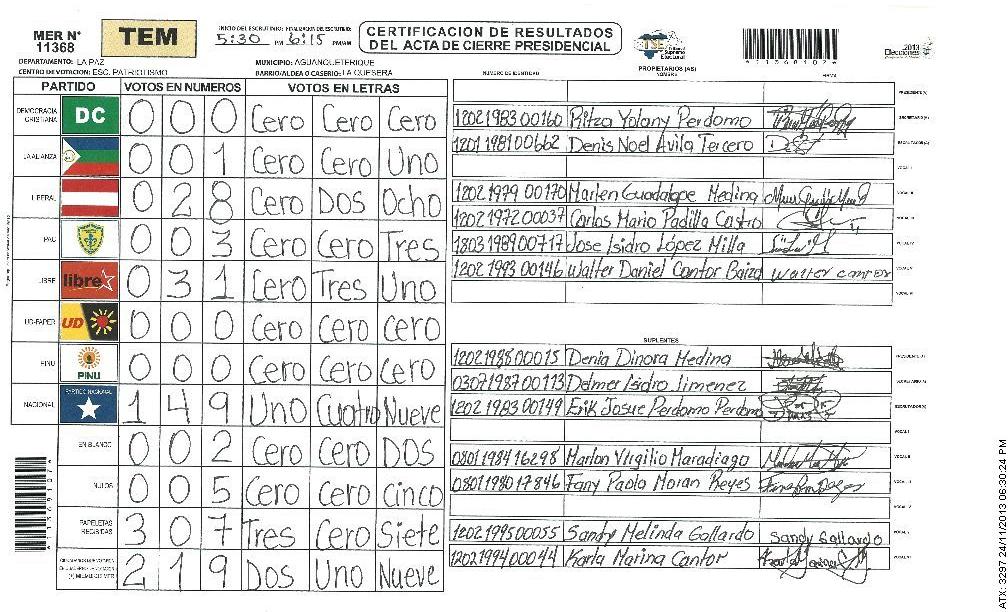 MER N° 11368
TEM
INICIO DEL ESCRUTINIO: 5:30 PM FINALIZACION DEL ESCRUTINIO: 6:15 PM/AM
CERTIFICACION DE RESULTADOS DEL ACTA DE CIERRE PRESIDENCIAL
TSE Tribunal Supremo Electoral
Elecciones 2013
DEPARTAMENTO: LA PAZ
MUNICIPIO: AGUANQUETERIQUE
CENTRO DE VOTACION: ESC. PATRIOTISMO
BARRIO/ALDEA O CASERIO: LA QUESERA
PROPIETARIOS (AS)
NUMERO DE IDENTIDAD NOMBRE FIRMA
PARTIDO VOTOS EN NUMEROS VOTOS EN LETRAS
DEMOCRACIA CRISTIANA DC 0 0 0 Cero Cero Cero
LA ALIANZA 0 0 1 Cero Cero Uno
LIBERAL 0 2 8 Cero Dos Ocho
PAC 0 0 3 Cero Cero Tres
LIBRE libre 0 3 1 Cero Tres Uno
UD-FAPER UD 0 0 0 Cero Cero Cero
PINU PINU 0 0 0 Cero Cero Cero
NACIONAL PARTIDO NACIONAL 1 4 9 Uno Cuatro Nueve
EN BLANCO 0 0 2 Cero Cero DOS
NULOS 0 0 5 Cero Cero Cinco
PAPELETAS RECIBIDAS 3 0 7 Tres Cero Siete
2 1 9 Dos Uno Nueve
PRESIDENTE (A)
1202 1983 00160 Ritza Yolany Perdomo SECRETARIO (A)
1201 1981 00662 Denis Noel Avila Tercero ESCRUTADOR (A)
VOCAL I
1202 1979 00170 Marlen Guadalope Medina VOCAL II
1202 1972 00037 Carlos Mario Padilla Castro VOCAL III
1803 1989 00717 Jose Isidro López Milla VOCAL IV
1202 1993 00146 Walter Daniel Cantor Baiza Walter cantor VOCAL V
VOCAL VI
SUPLENTES
1202 1988 00015 Denia Dinora Medina PRESIDENTE (A)
0307 1987 00113 Delmer Isidro Jimenez SECRETARIO (A)
1202 1983 00149 Erik Josue Perdomo Perdomo ESCRUTADOR (A)
VOCAL I
0801 1984 16298 Marlon Virgilio Maradiago VOCAL II
0801 1980 17846 Fany Paola Moran Reyes VOCAL III
VOCAL IV
1202 1995 00055 Sandy Melinda Gallardo Sandy Gallardo VOCAL V
1202 1994 00044 Karla Marina Cantor VOCAL VI
ATX: 3297 24/11/2013 06:30:24 PM